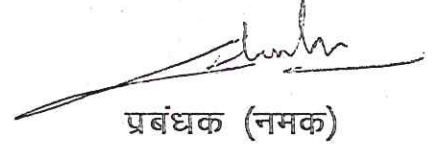 प्रबंधक (नमक)